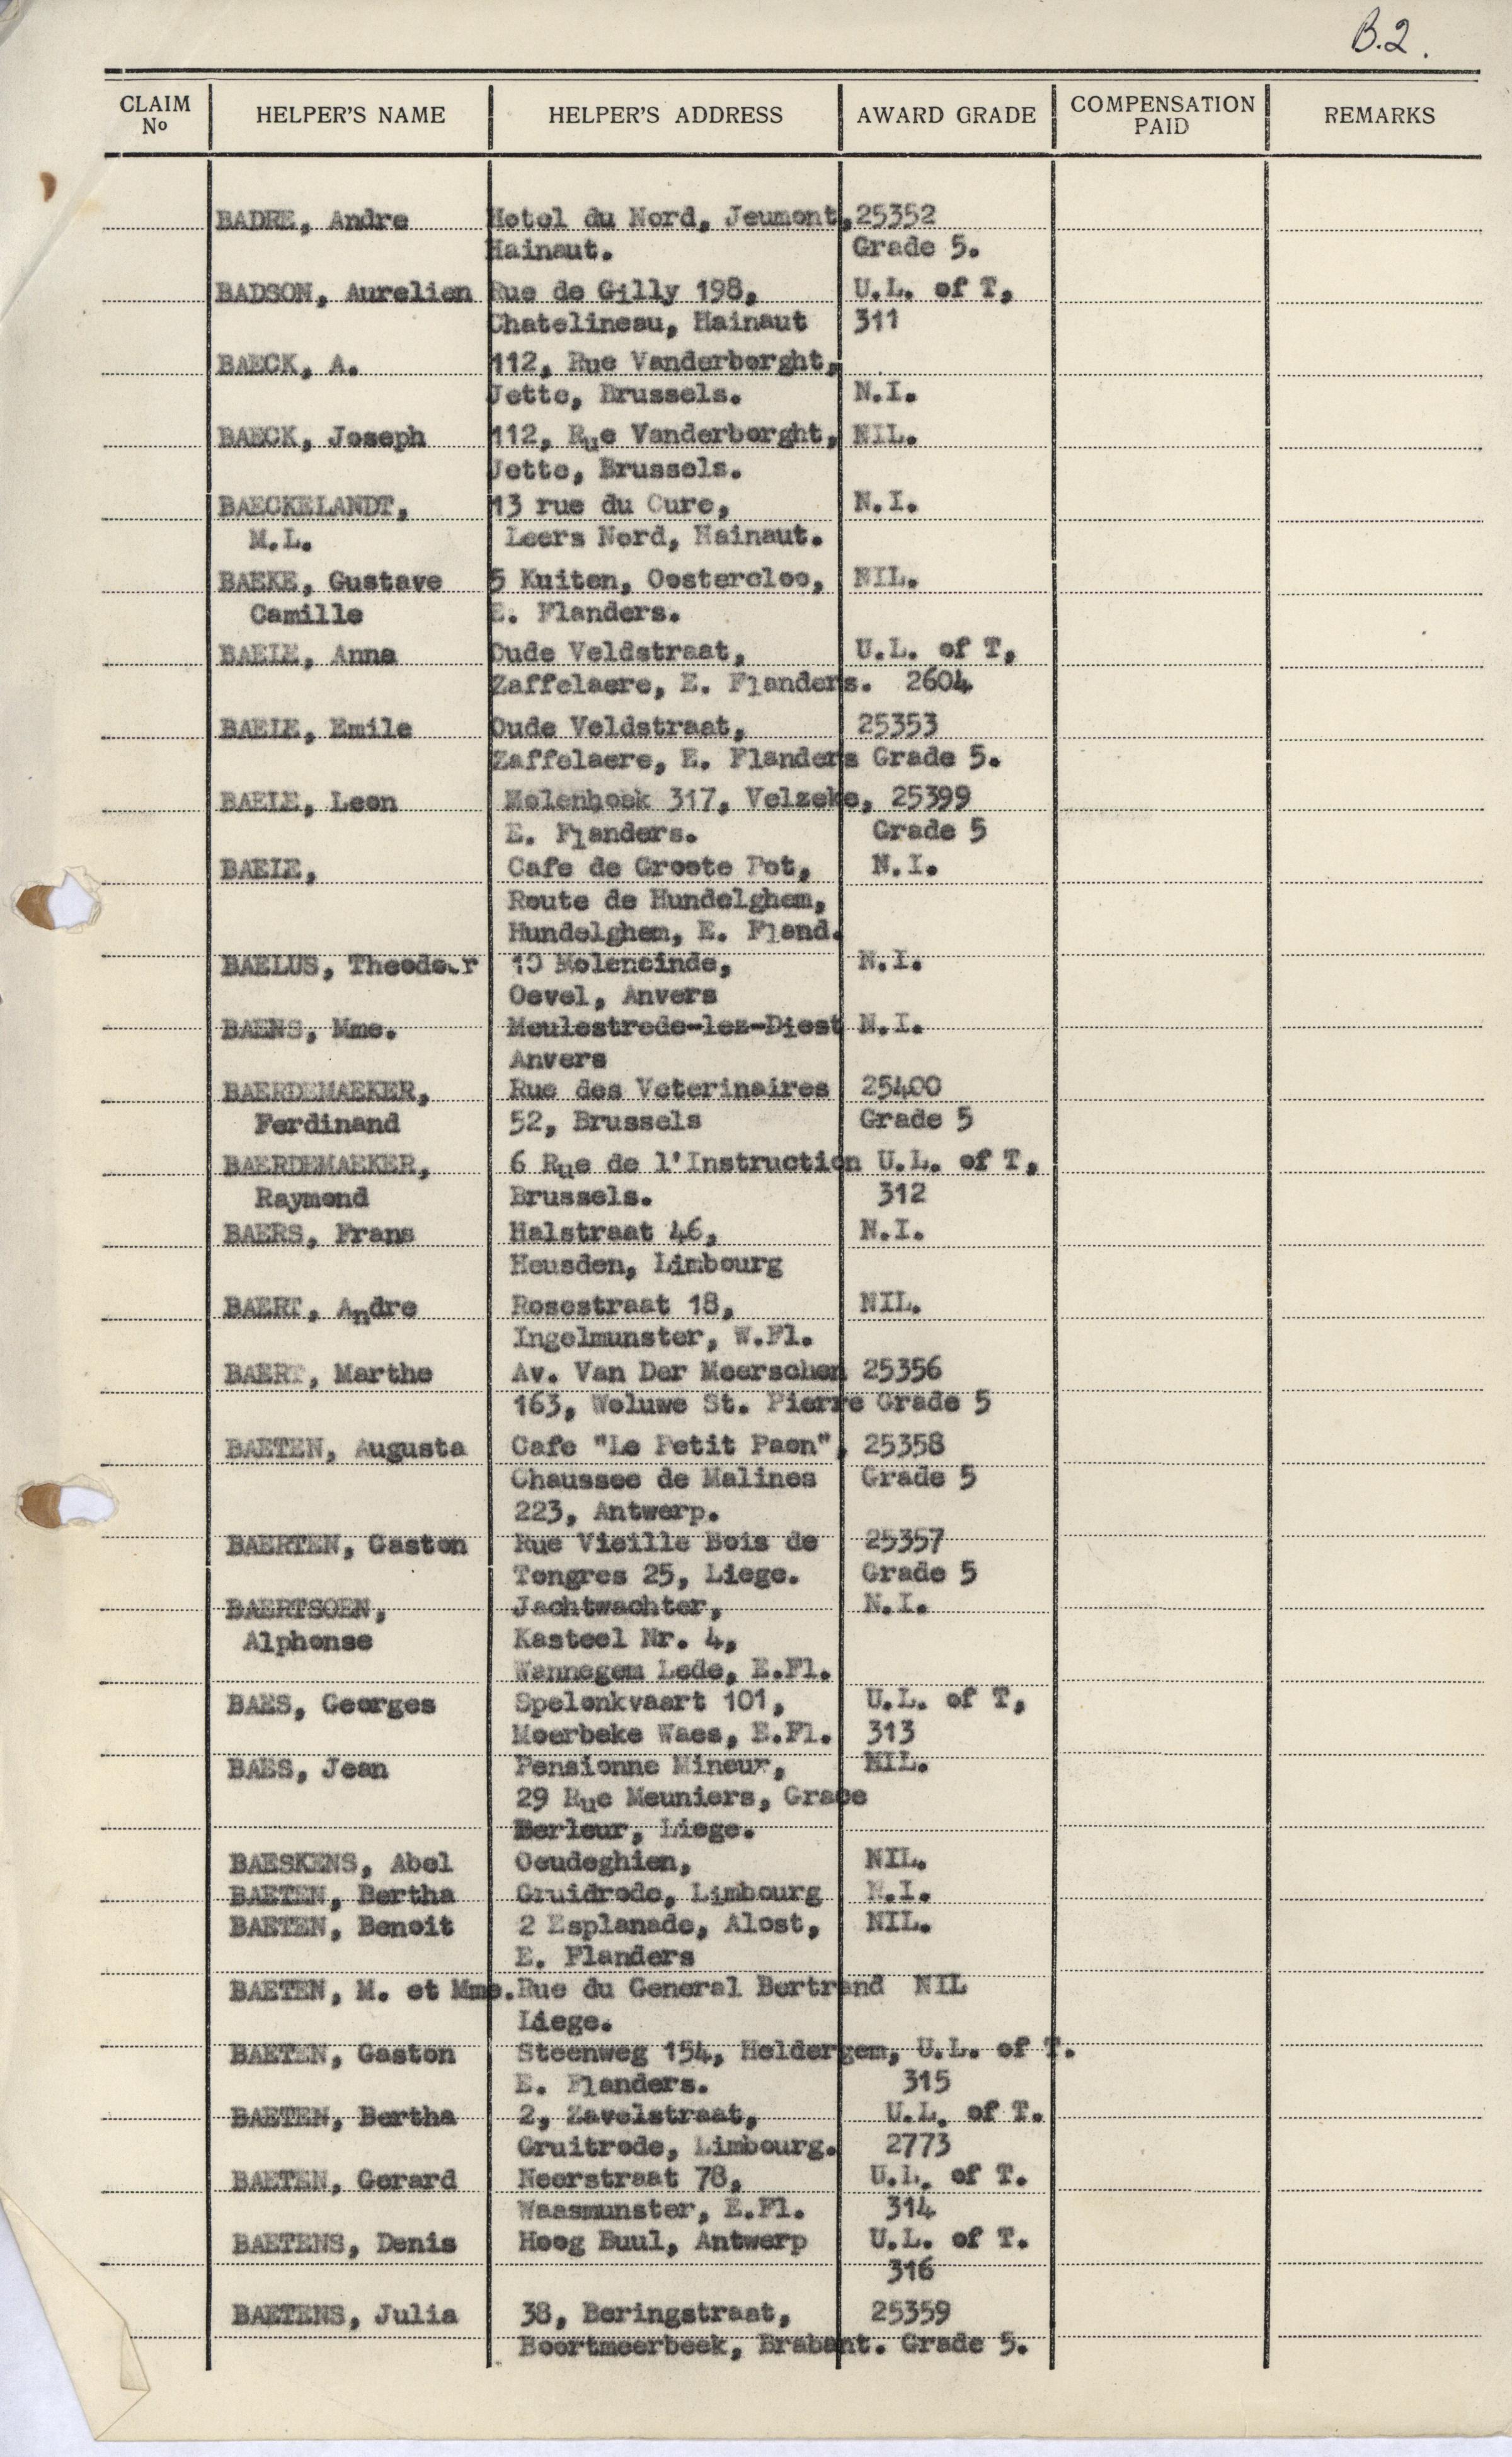 B.2.
CLAIM No HELPER'S NAME HELPER'S ADDRESS AWARD GRADE COMPENSATION PAID REMARKS
BADRE, Andre Hotel du Nord, Jeumont, 25352
Hainaut. Grade 5.
BADSON, Aurelien Rue de Gilly 198, U.L. of T,
Chatelineau, Hainaut 311
BAECK, A. 112, Rue Vanderborght,
Jette, Brussels. N.I.
BAECK, Joseph 112, Rue Vanderborght, NIL.
Jette, Brussels.
BAECKELANDT, 13 rue du Cure, N.I.
M.L. Leers Nord, Hainaut.
BAEKE, Gustave 5 Kuiten, Oostercloo, NIL.
Camille E. Flanders.
BAELE, Anna Oude Veldstraat, U.L. of T,
Zaffelaere, E. Flanders. 2604
BAELE, Emile Oude Veldstraat, 25353
Zaffelaere, E. Flanders Grade 5.
BAELE, Leon Molenhoek 317, Velzeke, 25399
E. Flanders. Grade 5
BAELE, Cafe de Groote Pot, N.I.
Route de Hundelghem,
Hundelghem, E. Fland.
BAELUS, Theodoor 10 Moleneinde, N.I.
Oevel, Anvers
BAENS, Mme. Meulestrede-lez-Diest N.I.
Anvers
BAERDEMAEKER, Rue des Veterinaires 25400
Ferdinand 52, Brussels Grade 5
BAERDEMAEKER, 6 Rue de l'Instruction U.L. of T,
Raymond Brussels. 312
BAERS, Frans Halstraat 46, N.I.
Heusden, Limbourg
BAERT, Andre Rosestraat 18, NIL.
Ingelmunster, W.Fl.
BAERT, Marthe Av. Van Der Meerschen 25356
163, Woluwe St. Pierre Grade 5
BAETEN, Augusta Cafe "Le Petit Paon", 25358
Chaussee de Malines Grade 5
223, Antwerp.
BAERTEN, Gaston Rue Vieille Bois de 25357
Tongres 25, Liege. Grade 5
BAERTSOEN, Jachtwachter, N.I.
Alphonse Kasteel Nr. 4,
Wannegem Lede, E.Fl.
BAES, Georges Spelonkvaart 101, U.L. of T,
Moerbeke Waes, E.Fl. 313
BAES, Jean Pensionne Mineur, NIL.
29 Rue Meuniers, Grace
Berleur, Liege.
BAESKENS, Abel Oeudeghien, NIL.
BAETEN, Bertha Gruidrode, Limbourg N.I.
BAETEN, Benoit 2 Esplanade, Alost, NIL.
E. Flanders
BAETEN, M. et Mme. Rue du General Bertrand NIL
Liege.
BAETEN, Gaston Steenweg 154, Heldergem, U.L. of T.
E. Flanders. 315
BAETEN, Bertha 2, Zavelstraat, U.L. of T.
Gruitrode, Limbourg. 2773
BAETEN, Gerard Neerstraat 78, U.L. of T.
Waasmunster, E.Fl. 314
BAETENS, Denis Hoog Buul, Antwerp U.L. of T.
316
BAETENS, Julia 38, Beringstraat, 25359
Boortmeerbeek, Brabant. Grade 5.